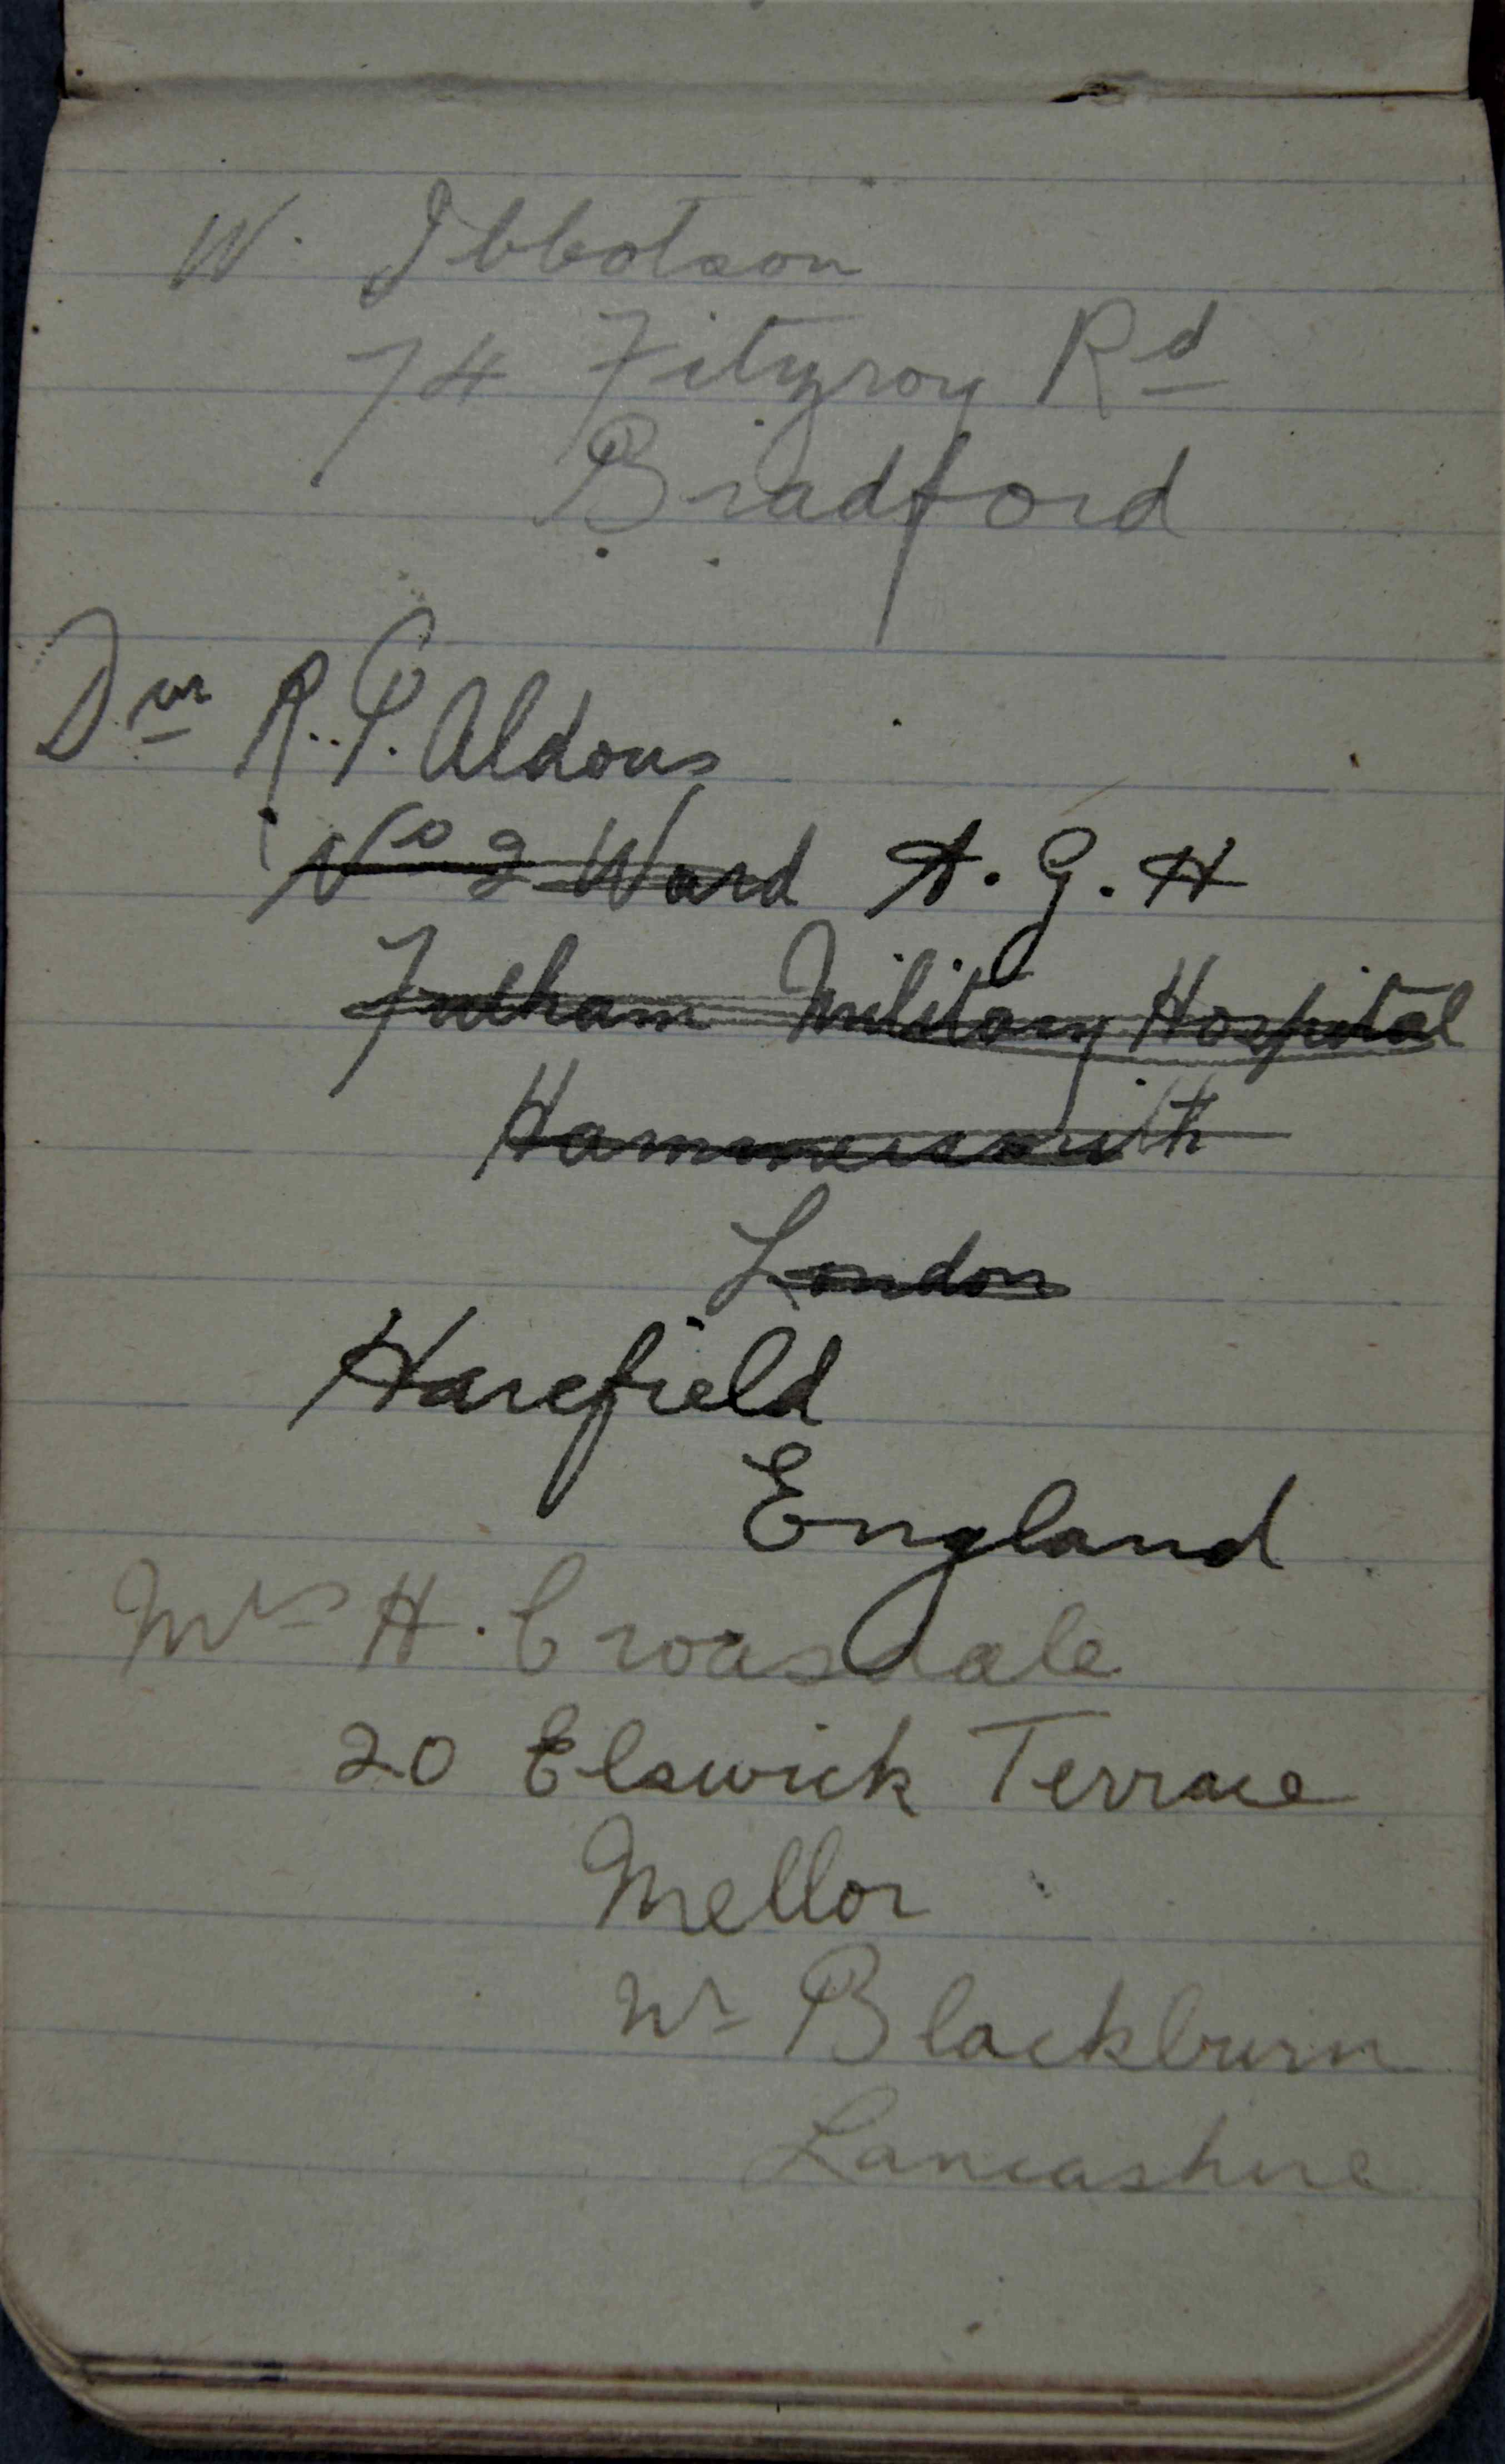 W. Ibbotson
74 Fitzroy Rd
Bradford
Dvr R. P. Aldous
No 2 Ward A. G. H
Fulham Military Hospital
Hammersmith
London
Harefield
England
Mrs H. Croasdale
20 Elswick Terrace
Mellor
Nr Blackburn
Lancashire